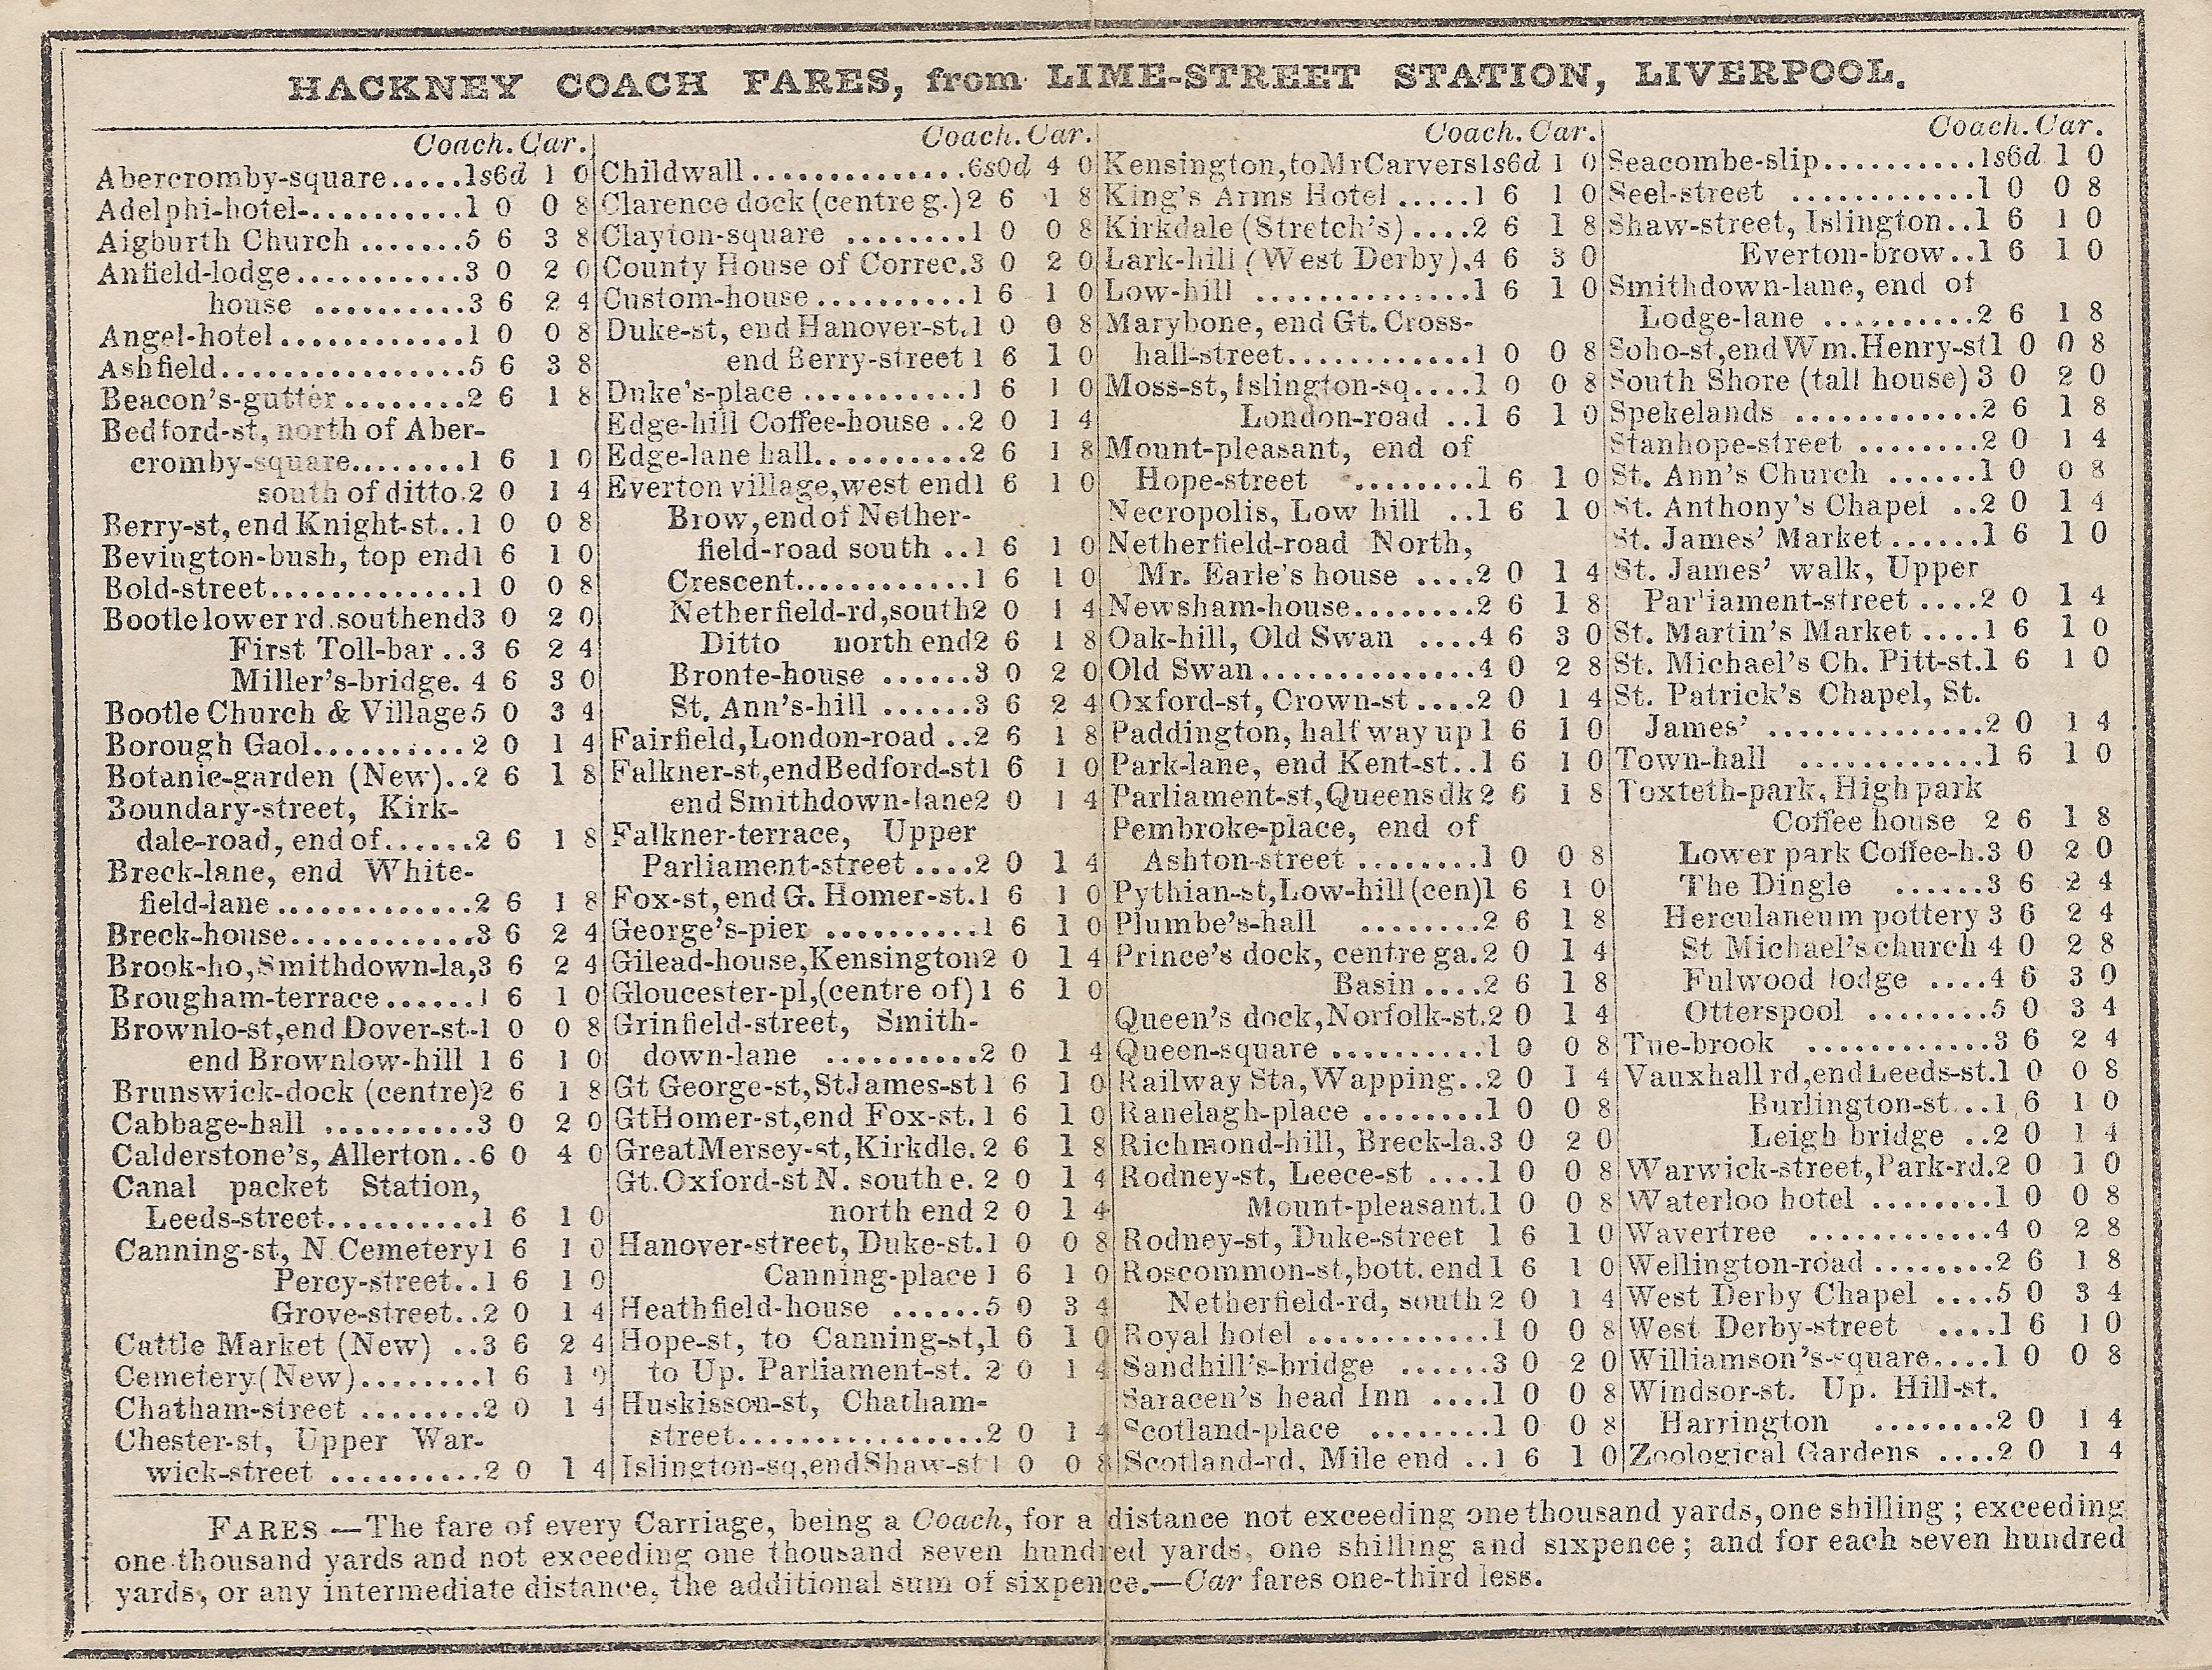 HACKNEY COACH FARES, from LIME-STREET STATION, LIVERPOOL.
Coach. Car.
Abercromby-square.....1s6d 1 0
Adelphi-hotel-...........1 0 0 8
Aigburth Church .......5 6 3 8
Anfield-lodge............3 0 2 0
house ..........3 6 2 4
Angel-hotel.............1 0 0 8
Ashfield.................5 6 3 8
Beacon's-gutter ........2 6 1 8
Bedford-st, north of Aber-
cromby-square........1 6 1 0
south of ditto.2 0 1 4
Berry-st, end Knight-st..1 0 0 8
Bevington-bush, top end1 6 1 0
Bold-street..............1 0 0 8
Bootle lower rd. southend3 0 2 0
First Toll-bar ..3 6 2 4
Miller's-bridge. 4 6 3 0
Bootle Church & Village5 0 3 4
Borough Gaol..........2 0 1 4
Botanic-garden (New)..2 6 1 8
Boundary-street, Kirk-
dale-road, end of......2 6 1 8
Breck-lane, end White-
field-lane..............2 6 1 8
Breck-house.............3 6 2 4
Brook-ho, Smithdown-la,3 6 2 4
Brougham-terrace......1 6 1 0
Brownlo-st,end Dover-st-1 0 0 8
end Brownlow-hill 1 6 1 0
Brunswick-dock (centre)2 6 1 8
Cabbage-hall ..........3 0 2 0
Calderstone's, Allerton..6 0 4 0
Canal packet Station,
Leeds-street..........1 6 1 0
Canning-st, N. Cemetery1 6 1 0
Percy-street..1 6 1 0
Grove-street..2 0 1 4
Cattle Market (New) ..3 6 2 4
Cemetery(New)........1 6 1 0
Chatham-street ........2 0 1 4
Chester-st, Upper War-
wick-street ..........2 0 1 4
Coach. Car.
Childwall ..............6s0d 4 0
Clarence dock (centre g.)2 6 1 8
Clayton-square ........1 0 0 8
County House of Correc.3 0 2 0
Custom-house..........1 6 1 0
Duke-st, end Hanover-st.1 0 0 8
end Berry-street 1 6 1 0
Duke's-place ...........1 6 1 0
Edge-hill Coffee-house ..2 0 1 4
Edge-lane hall..........2 6 1 8
Everton village,west end1 6 1 0
Brow, end of Nether-
field-road south ..1 6 1 0
Crescent............1 6 1 0
Netherfield-rd,south2 0 1 4
Ditto north end2 6 1 8
Bronte-house ......3 0 2 0
St. Ann's-hill ......3 6 2 4
Fairfield, London-road ..2 6 1 8
Falkner-st,endBedford-st1 6 1 0
end Smithdown-lane2 0 1 4
Falkner-terrace, Upper
Parliament-street ....2 0 1 4
Fox-st, end G. Homer-st.1 6 1 0
George's-pier ..........1 6 1 0
Gilead-house,Kensington2 0 1 4
Gloucester-pl,(centre of)1 6 1 0
Grinfield-street, Smith-
down-lane ..........2 0 1 4
Gt George-st, StJames-st1 6 1 0
GtHomer-st,end Fox-st.1 6 1 0
GreatMersey-st,Kirkdle.2 6 1 8
Gt.Oxford-st N. south e. 2 0 1 4
north end 2 0 1 4
Hanover-street, Duke-st.1 0 0 8
Canning-place 1 6 1 0
Heathfield-house ......5 0 3 4
Hope-st, to Canning-st,1 6 1 0
to Up. Parliament-st. 2 0 1 4
Huskisson-st, Chatham-
street................2 0 1 4
Islington-sq,endShaw-st1 0 0 8
Coach. Car.
Kensington,toMrCarvers1s6d 1 0
King's Arms Hotel .....1 6 1 0
Kirkdale (Stretch's) ....2 6 1 8
Lark-hill (West Derby)..4 6 3 0
Low-hill ...............1 6 1 0
Marybone, end Gt. Cross-
hall-street.............1 0 0 8
Moss-st, Islington-sq....1 0 0 8
London-road ..1 6 1 0
Mount-pleasant, end of
Hope-street .........1 6 1 0
Necropolis, Low hill ..1 6 1 0
Netherfield-road North,
Mr. Earle's house ....2 0 1 4
Newsham-house........2 6 1 8
Oak-hill, Old Swan ....4 6 3 0
Old Swan...............4 0 2 8
Oxford-st, Crown-st ....2 0 1 4
Paddington, half way up 1 6 1 0
Park-lane, end Kent-st..1 6 1 0
Parliament-st,Queensdk 2 6 1 8
Pembroke-place, end of
Ashton-street ........1 0 0 8
Pythian-st,Low-hill(cen)1 6 1 0
Plumbe's-hall ........2 6 1 8
Prince's dock, centre ga.2 0 1 4
Basin ....2 6 1 8
Queen's dock,Norfolk-st.2 0 1 4
Queen-square ..........1 0 0 8
Railway Sta, Wapping..2 0 1 4
Ranelagh-place ........1 0 0 8
Richmond-hill, Breck-la.3 0 2 0
Rodney-st, Leece-st ....1 0 0 8
Mount-pleasant.1 0 0 8
Rodney-st, Duke-street 1 6 1 0
Roscommon-st,bott. end1 6 1 0
Netherfield-rd, south2 0 1 4
Royal hotel ............1 0 0 8
Sandhill's-bridge ......3 0 2 0
Saracen's head Inn ....1 0 0 8
Scotland-place ........1 0 0 8
Scotland-rd, Mile end ..1 6 1 0
Coach. Car.
Seacombe-slip..........1s6d 1 0
Seel-street ............1 0 0 8
Shaw-street, Islington..1 6 1 0
Everton-brow..1 6 1 0
Smithdown-lane, end of
Lodge-lane ..........2 6 1 8
Soho-st,endWm.Henry-st1 0 0 8
South Shore (tall house) 3 0 2 0
Spekelands ............2 6 1 8
Stanhope-street ........2 0 1 4
St. Ann's Church ......1 0 0 8
St. Anthony's Chapel ..2 0 1 4
St. James' Market......1 6 1 0
St. James' walk, Upper
Parliament-street ....2 0 1 4
St. Martin's Market ....1 6 1 0
St. Michael's Ch. Pitt-st.1 6 1 0
St. Patrick's Chapel, St.
James' ..............2 0 1 4
Town-hall ............1 6 1 0
Toxteth-park, High park
Coffee house 2 6 1 8
Lower park Coffee-h.3 0 2 0
The Dingle ......3 6 2 4
Herculaneum pottery 3 6 2 4
St Michael's church 4 0 2 8
Fulwood lodge ....4 6 3 0
Otterspool ........5 0 3 4
Tue-brook ............3 6 2 4
Vauxhall rd,endLeeds-st.1 0 0 8
Burlington-st...1 6 1 0
Leigh bridge ..2 0 1 4
Warwick-street,Park-rd.2 0 1 0
Waterloo hotel ........1 0 0 8
Wavertree ............4 0 2 8
Wellington-road ........2 6 1 8
West Derby Chapel ....5 0 3 4
West Derby-street ....1 6 1 0
Williamson's-square....1 0 0 8
Windsor-st. Up. Hill-st.
Harrington ........2 0 1 4
Zoological Gardens ....2 0 1 4
FARES.—The fare of every Carriage, being a Coach, for a distance not exceeding one thousand yards, one shilling ; exceeding
one thousand yards and not exceeding one thousand seven hundred yards, one shilling and sixpence ; and for each seven hundred
yards, or any intermediate distance, the additional sum of sixpence.—Car fares one-third less.